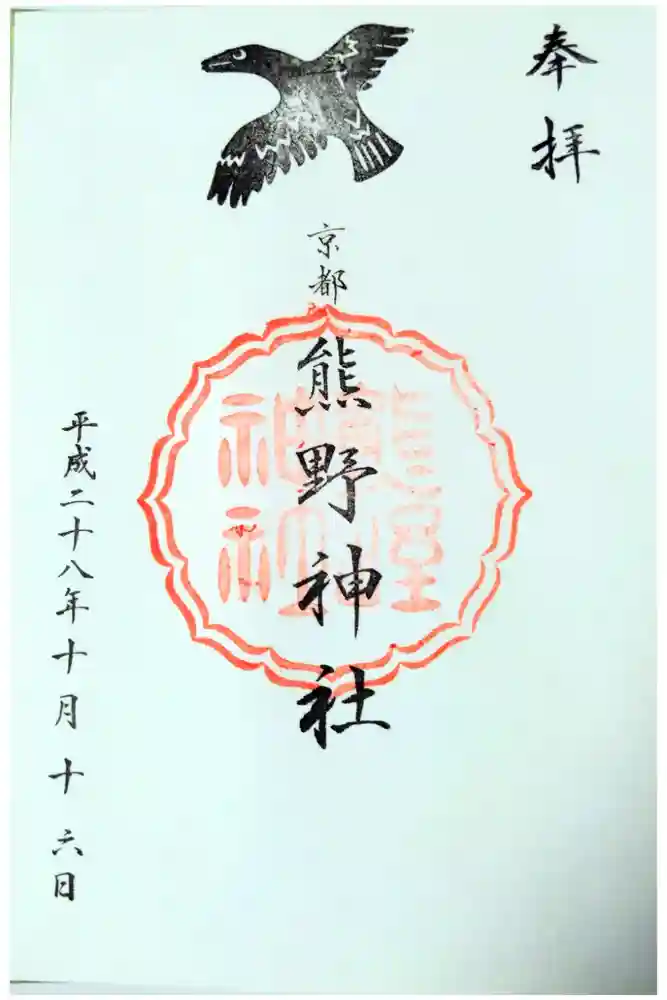 奉拝
京都
熊野神社
熊野
神社
平成二十八年十月十六日